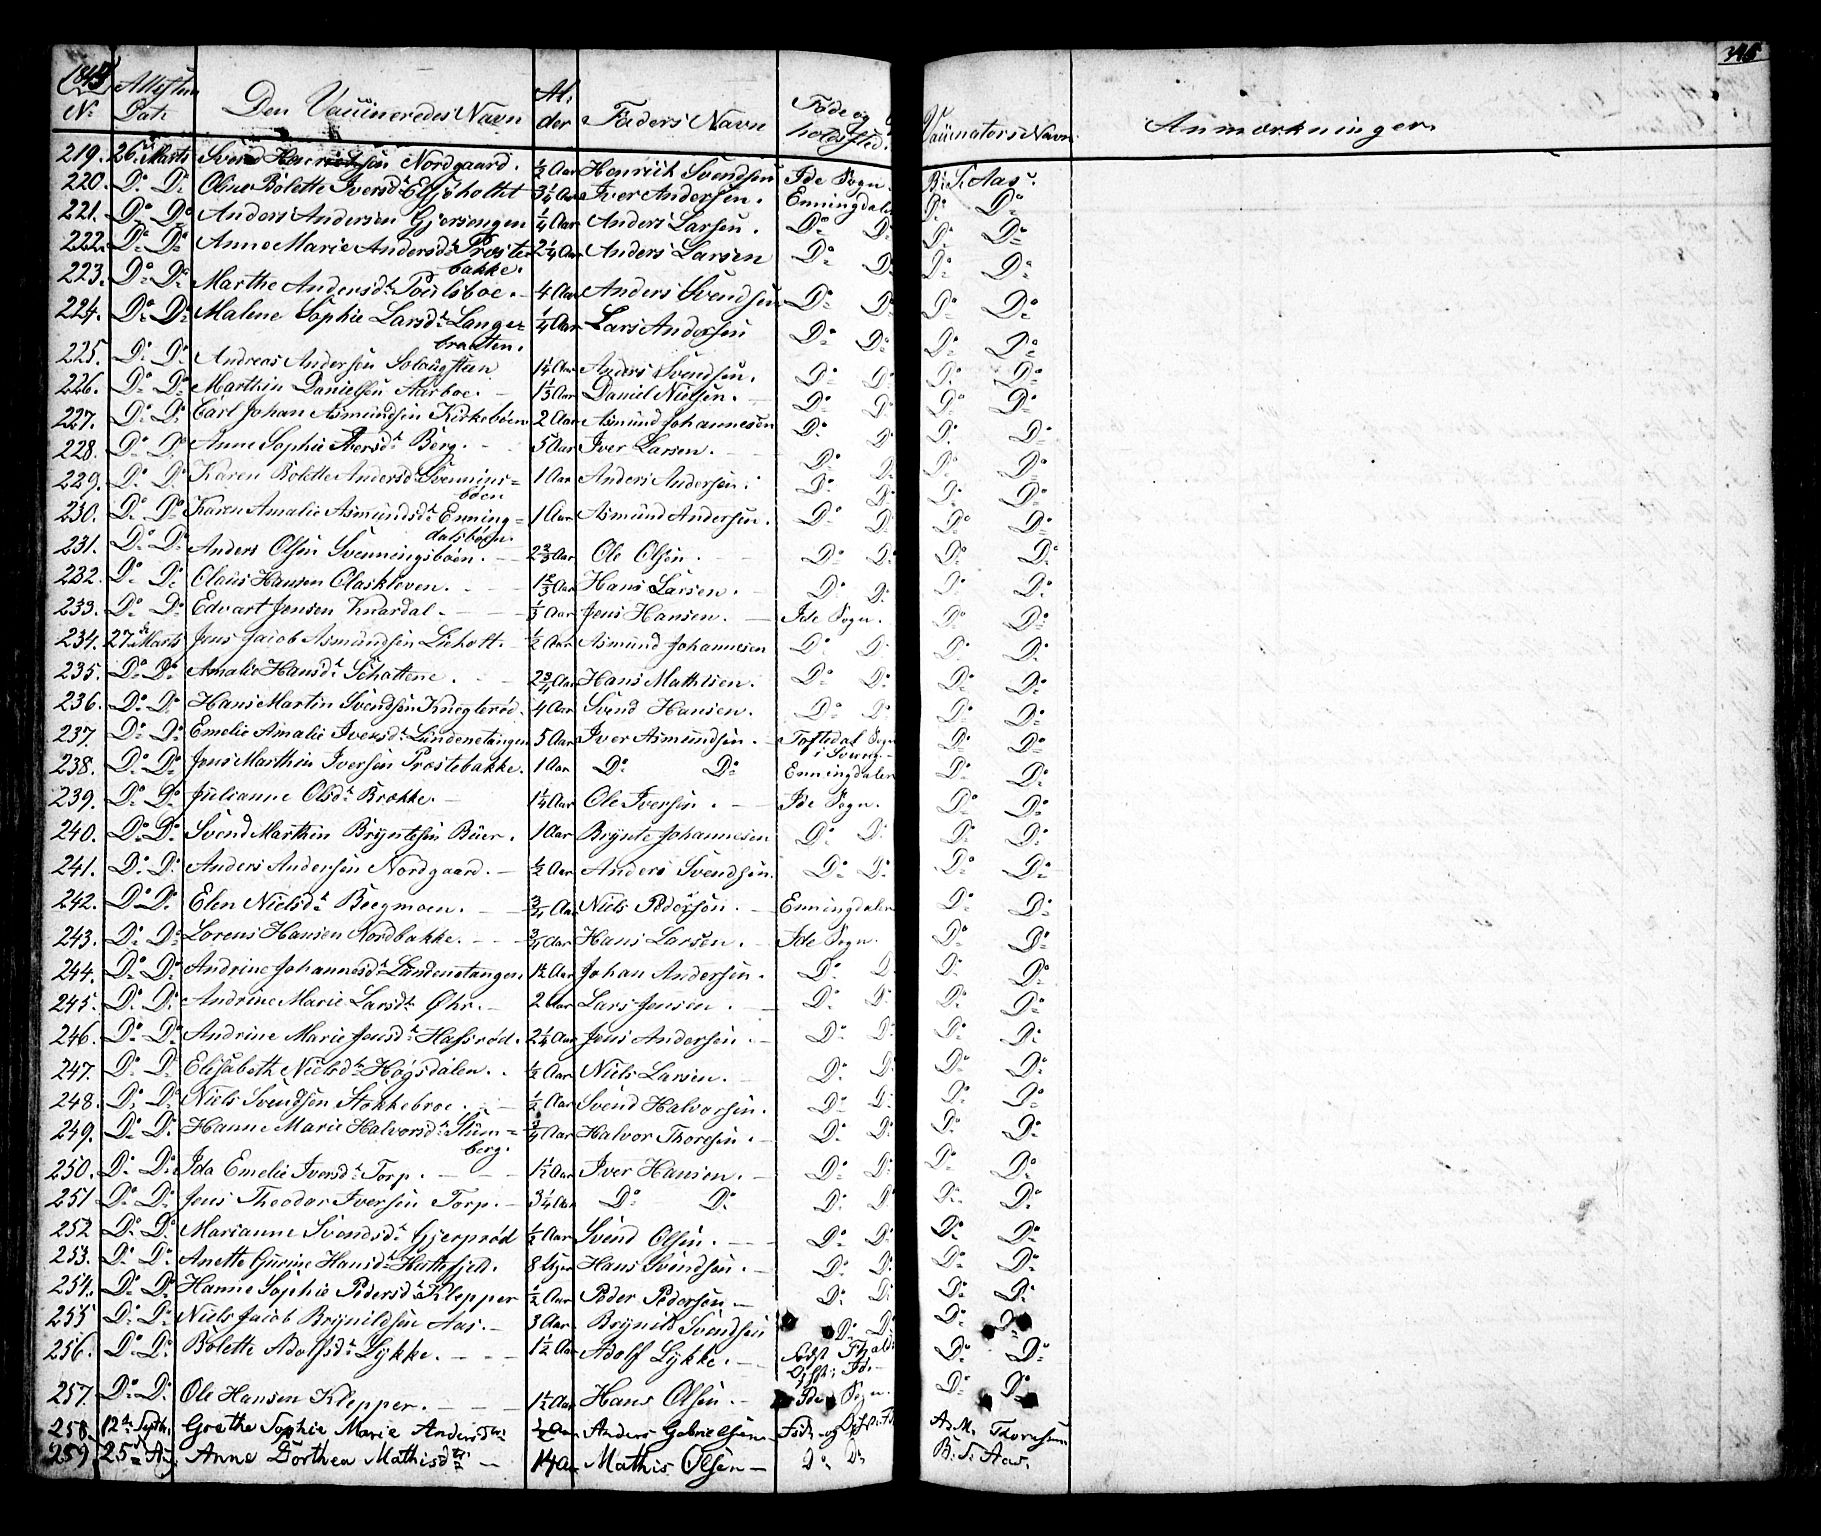 1843 Attestens Den Vaccineredes Navn Al- Faders Navn Føde og Vaccinators Navn Anmærkninger
No Dat: der holdssted.
219. 26de Marts Svend Henrichsen Nordgaard. ½ Aar Henrich Svendsen Ide Sogn. B: S. Aas.
220. Do Do Oline Bolette Iversdr Elsjøholtet 3¼ Aar Iver Andersen. Enningdalen Do Do
221. Do Do Anders Andersen Gjersengen ¼ Aar Anders Larsen. Do Do Do Do
222. Do Do Anne Marie Andersdr Præste- 2¼ Aar Anders Larsen Do Do Do Do
bakke.
223. Do Do Marthe Andersdr Poulsboe. 4 Aar Anders Svendsen Do Do Do Do
224. Do Do Malene Sophie Larsdr Lange- ¼ Aar Lars Andersen Do Do Do Do
braaten.
225. Do Do Andreas Andersen 1¼ Aar Anders Svendsen. Do Do Do Do
226. Do Do Marthin Danielsen Aarboe. 1⅓ Aar Daniel Nielsen. Do Do Do Do
227. Do Do Carl Johan Asmundsen Kirkebøen 2 Aar Asmund Johannesen Do Do Do Do
228. Do Do Anne Sophie Iversdr Berg. 5 Aar Iver Larsen. Do Do Do Do
229. Do Do Karen Bolette Andersdr Svennings- 1 Aar Anders Andersen. Do Do Do Do
bøen
230. Do Do Karen Amalie Asmundsdr Enning- 1 Aar Asmund Andersen. Do Do Do Do
dalsbøen.
231. Do Do Anders Olsen Svenningsbøen. 2⅔ Aar Ole Olsen. Do Do Do Do
232. Do Do Olaus Hansen Olaskleven. 1⅔ Aar Hans Larsen. Do Do Do Do
233. Do Do Edvart Jensen Knardal. ⅓ Aar Jens Hansen. Ide Sogn. Do Do
234. 27de Marts Jens Jacob Asmundsen Liholt. ½ Aar Asmund Johannesen Do Do Do Do
235. Do Do Amalie Hansdr Schattene. 2¾ Aar Hans Mathisen. Do Do Do Do
236. Do Do Hans Martin Svendsen Knegterød. 4 Aar Svend Hansen. Do Do Do Do
237. Do Do Emelie Amalie Iversdr Lundenetangen 5 Aar Iver Asmundsen. Töftedal Sogn Do Do
i Sverig
238. Do Do Jens Marthin Iversen Præstebakke. 1 Aar Do Do Enningdalen Do Do
239. Do Do Julianne Olsdr Brække. 1¼ Aar Ole Iversen. Ide Sogn. Do Do
240. Do Do Svend Marthin Bryntesen Buer. 1 Aar Brynte Johannesen Do Do Do Do
241. Do Do Anders Andersen Nordgaard. ½ Aar Anders Svendsen. Do Do Do Do
242. Do Do Elen Nielsdr Bergmoen. ¾ Aar Niels Pedersen. Enningdalen Do Do
243. Do Do Lorens Hansen Nordbakke. ¾ Aar Hans Larsen. Ide Sogn. Do Do
244. Do Do Andrine Johannesdr Lundenetangen 1½ Aar Johan Andersen. Do Do Do Do
245. Do Do Andrine Marie Larsdr Øhr. 2 Aar Lars Jensen. Do Do Do Do
246. Do Do Andrine Marie Jensdr Hafsrød. 2¼ Aar Jens Andersen. Do Do Do Do
247. Do Do Elisabeth Nielsdr Høgsdalen. ½ Aar Niels Larsen. Do Do Do Do
248. Do Do Niels Svendsen Stokkebroe. ½ Aar Svend Halvorsen. Do Do Do Do
249. Do Do Hanne Marie Halvorsdr Stum- ¾ Aar Halvor Thoresen. Do Do Do Do
berg.
250. Do Do Ida Emelie Iversdr Torp. 1½ Aar Iver Hansen. Do Do Do Do
251 Do Do Jens Theodor Iversen Torp. 3¼ Aar Do Do Do Do Do Do
252 Do Do Marianne Svendsdr Gjerprød ½ Aar Svend Olsen. Do Do Do Do
253. Do Do Anette Gurine Hansdr 8 Uger Hans Svendsen. Do Do Do Do
254. Do Do Hanne Sophie Pedersdr Klepper ½ Aar Peder Pedersen Do Do Do Do
255 Do Do Niels Jacob Brynildsen Aas. 3 Aar. Brynild Svendsen Do Do Do Do
256. Do Do Bolette Adolfsdr Lykke. 1½ Aar Adolf Lykke. Do Do
257. Do Do Ole Hansen Klepper. 1½ Aar Hans Olsen. Ide Sogn. Do Do
258. 12te Septbr. Grethe Sophie Marie Andersdtr ½ Aar Anders Gabrielsen A. M. Thoresen.
259. 25 Anne Dorthea Mathisdtr 1¼ A Mathis Olsen Do Do B. S. Aas.